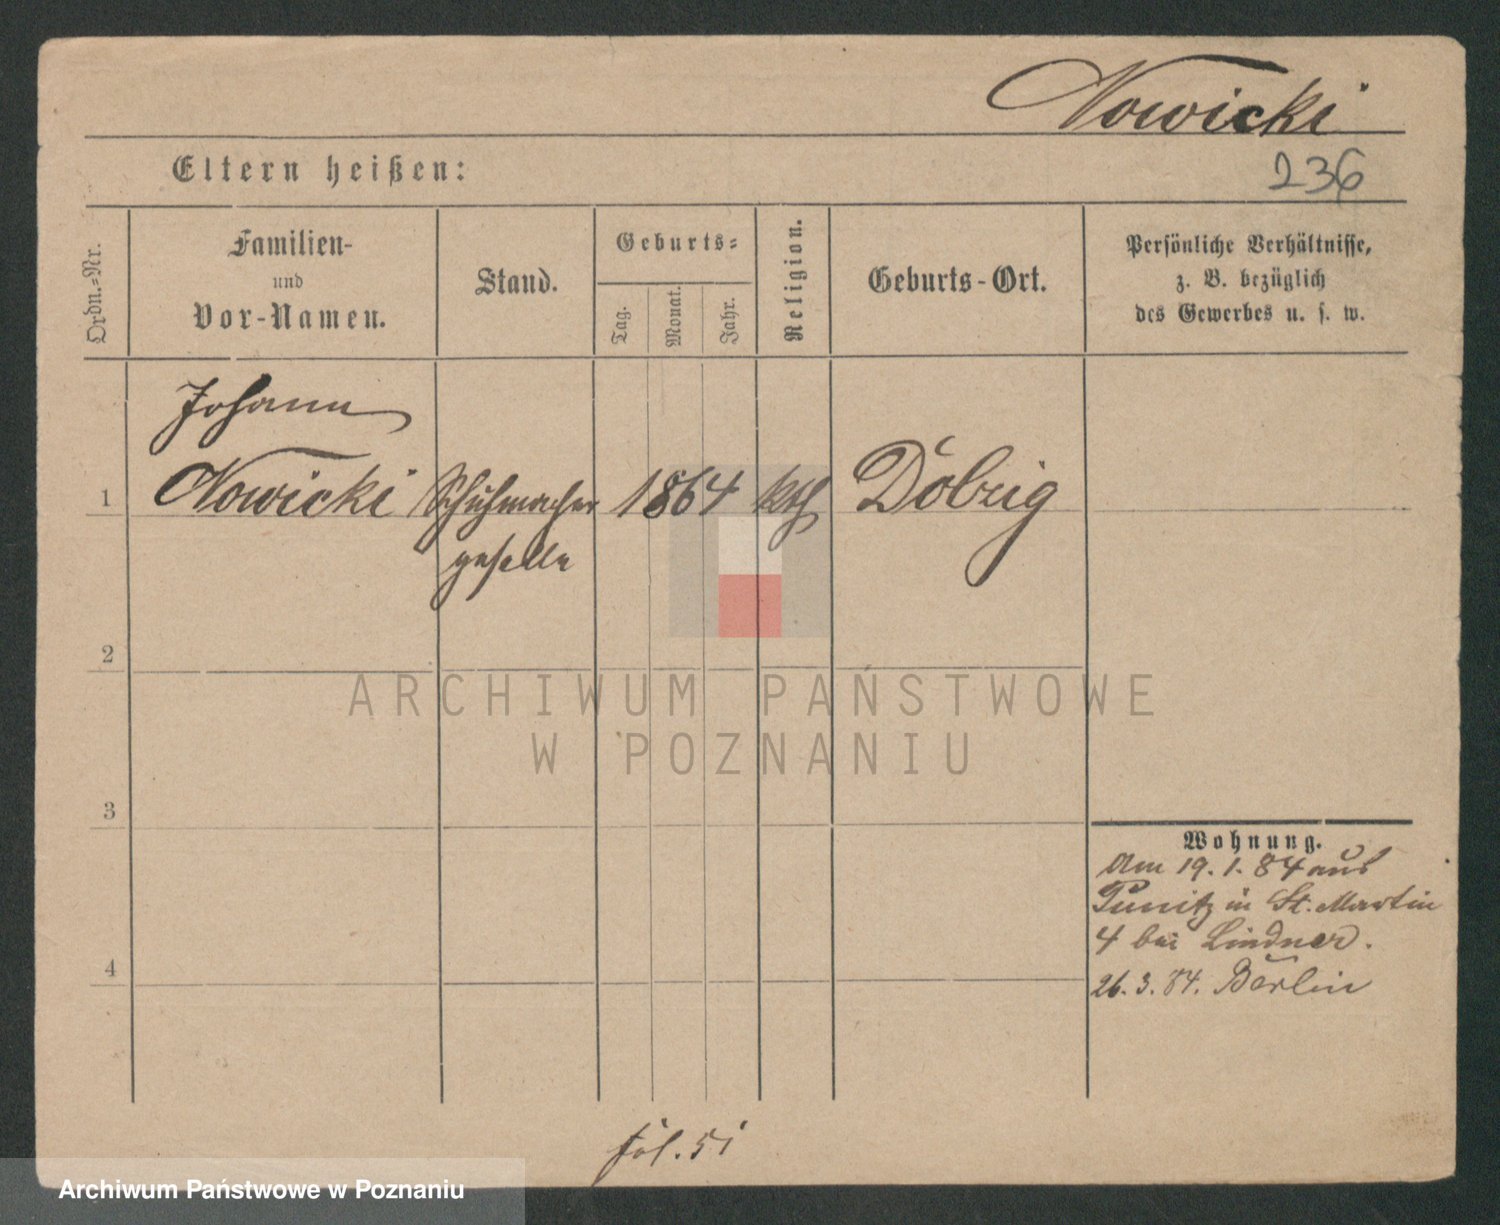 Nowicki
Eltern heißen:
236
Ordn.-Nr.
Familien-
und
Vor-Namen.
Stand.
Geburts-
Tag.
Monat.
Jahr.
Religion.
Geburts-Ort.
Persönliche Verhältnisse,
z. B. bezüglich
des Gewerbes u. s. w.
Johann
1 Nowicki Schuhmacher 1864 kth Dolzig
geselle
2
ARCHIWUM PAŃSTWOWE
W POZNANIU
3
Wohnung.
Am 19.1.84 aus
Punitz in St. Martin
4 bei Lindner.
4
26.3.84. Berlin
fol. 51
Archiwum Państwowe w Poznaniu